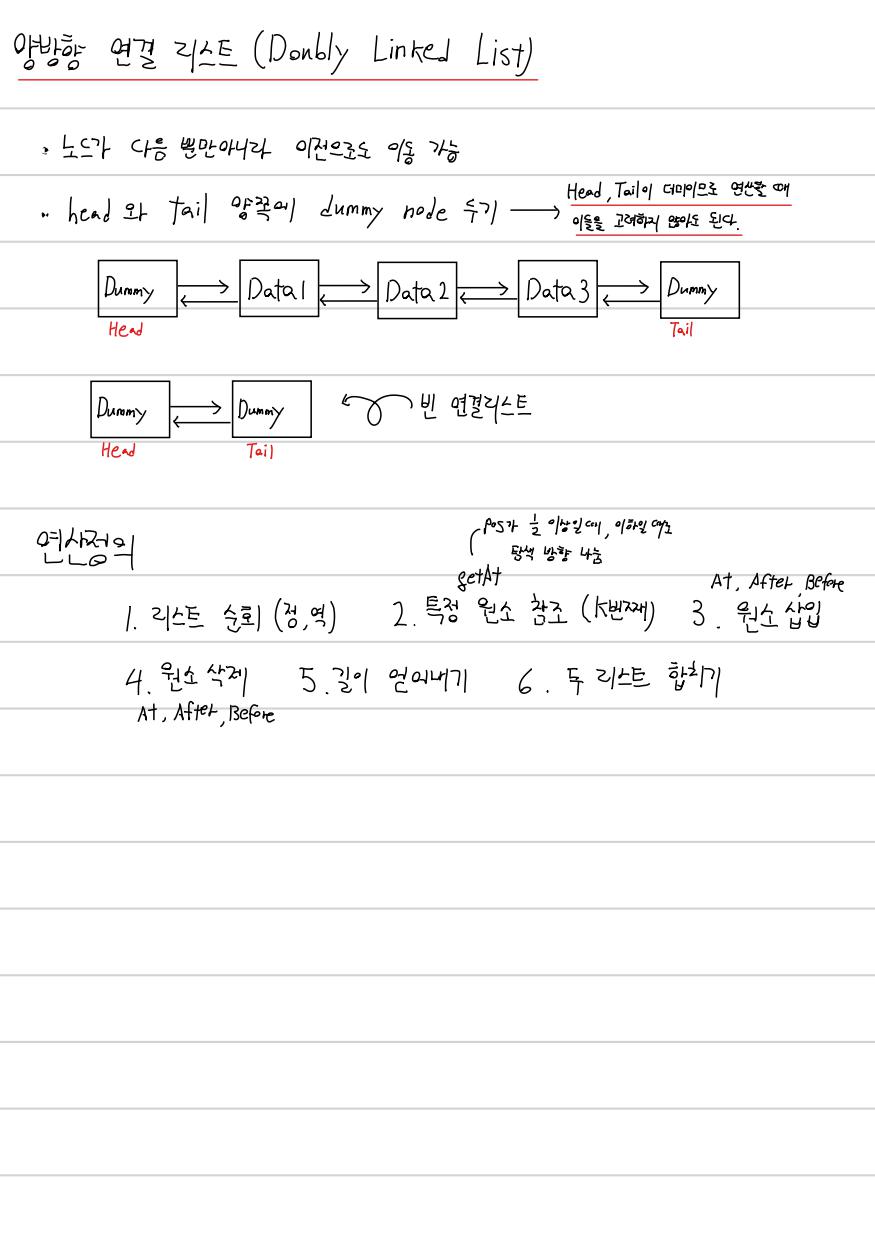 양방향 연결 리스트 (Doubly Linked List)
노드가 다음 뿐만아니라 이전으로도 이동 가능
head 와 tail 양쪽에 dummy node 두기 → Head, Tail이 더미이므로 연산할 때
이들을 고려하지 않아도 된다.
Dummy Data1 Data2 Data3 Dummy
Head Tail
Dummy Dummy 빈 연결리스트
Head Tail
연산정의
pos가 ½ 이상일 때, 이하일 때로
탐색 방향 나눔
getAt
At, After, Before
1. 리스트 순회 (정, 역) 2. 특정 원소 참조 (K번째) 3. 원소 삽입
4. 원소 삭제 5. 길이 얻어내기 6. 두 리스트 합치기
At, After, Before